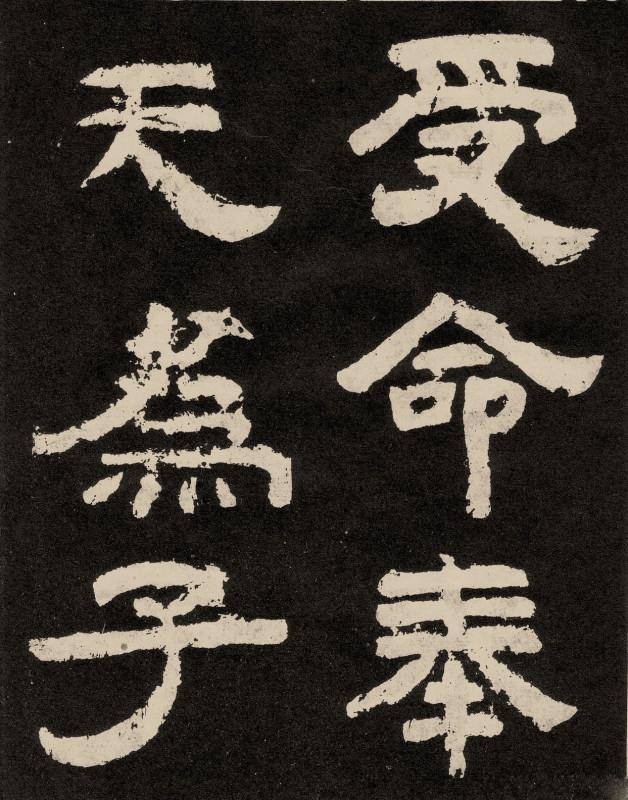 受命奉
天為子